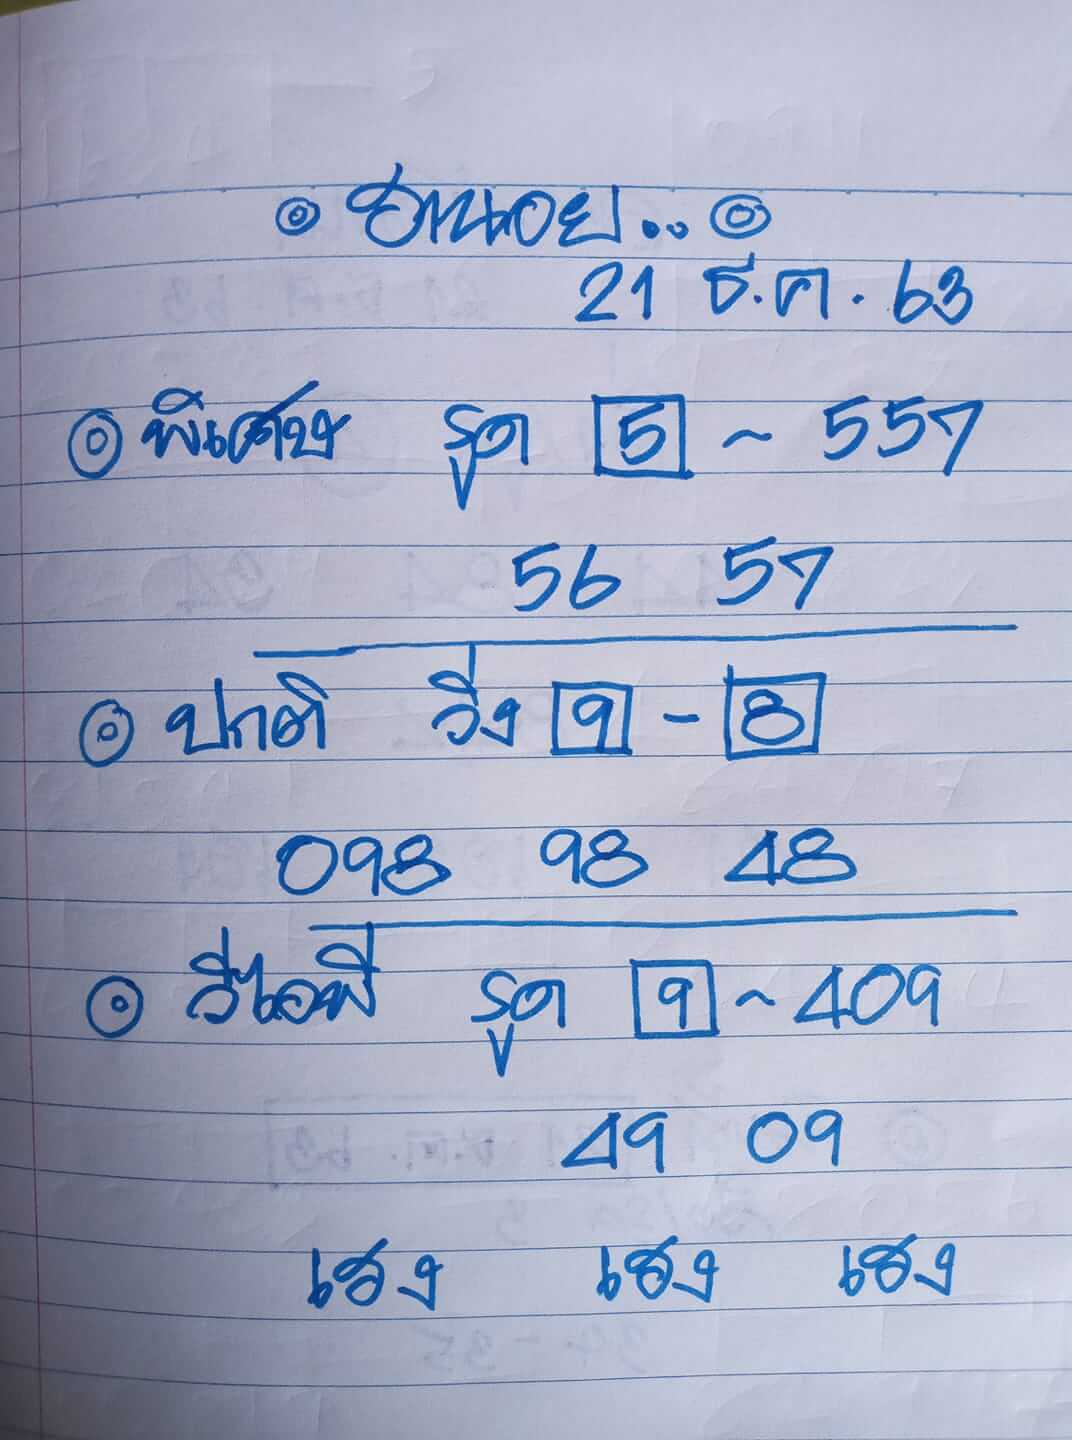 ฮานอย..
21 ธ.ค. 63
พิเศษ รูด 5 ~ 557
56 57
ปกติ วิ่ง 9 - 8
098 98 48
วีไอพี รูด 9 ~ 409
49 09
เฮง เฮง เฮง